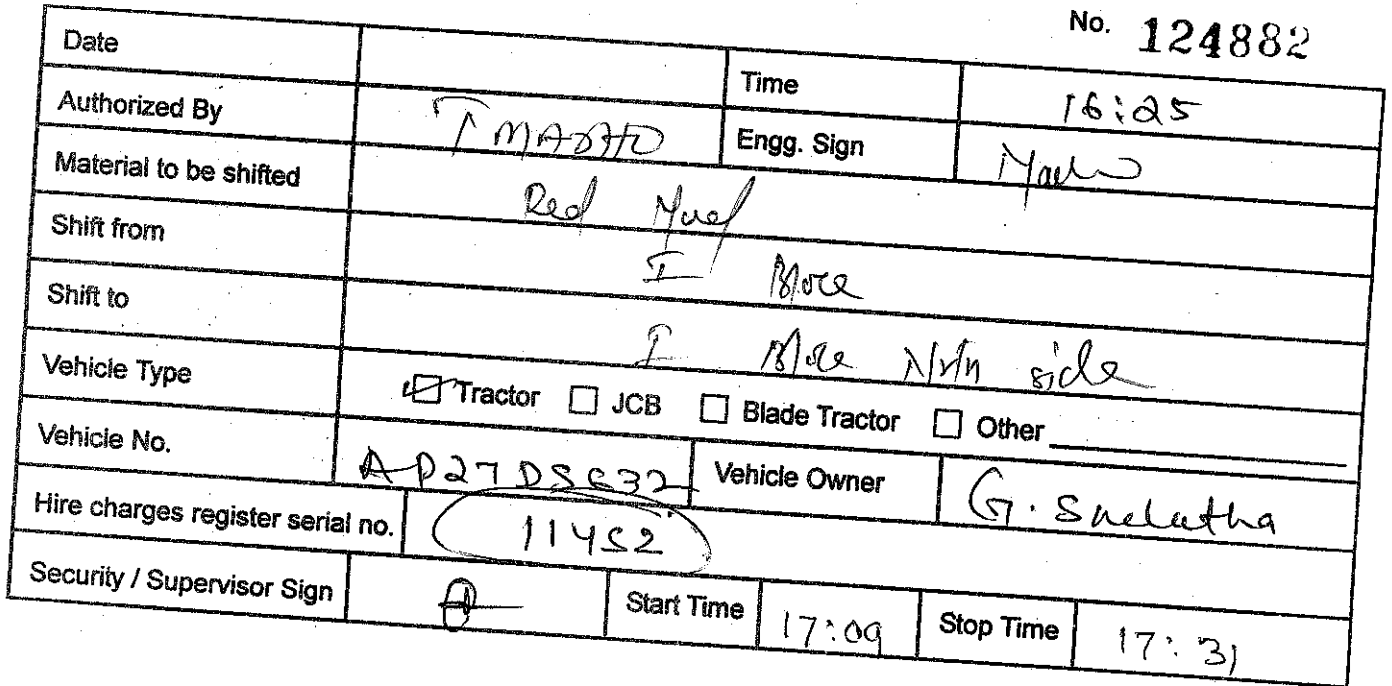 No. 124882
Date Time 16:25
Authorized By T MADHU Engg. Sign
Material to be shifted Red
Shift from I
Shift to I side
Vehicle Type Tractor JCB Blade Tractor Other
Vehicle No. AP27D5632 Vehicle Owner G.
Hire charges register serial no. 11452
Security / Supervisor Sign Start Time 17:09 Stop Time 17:31